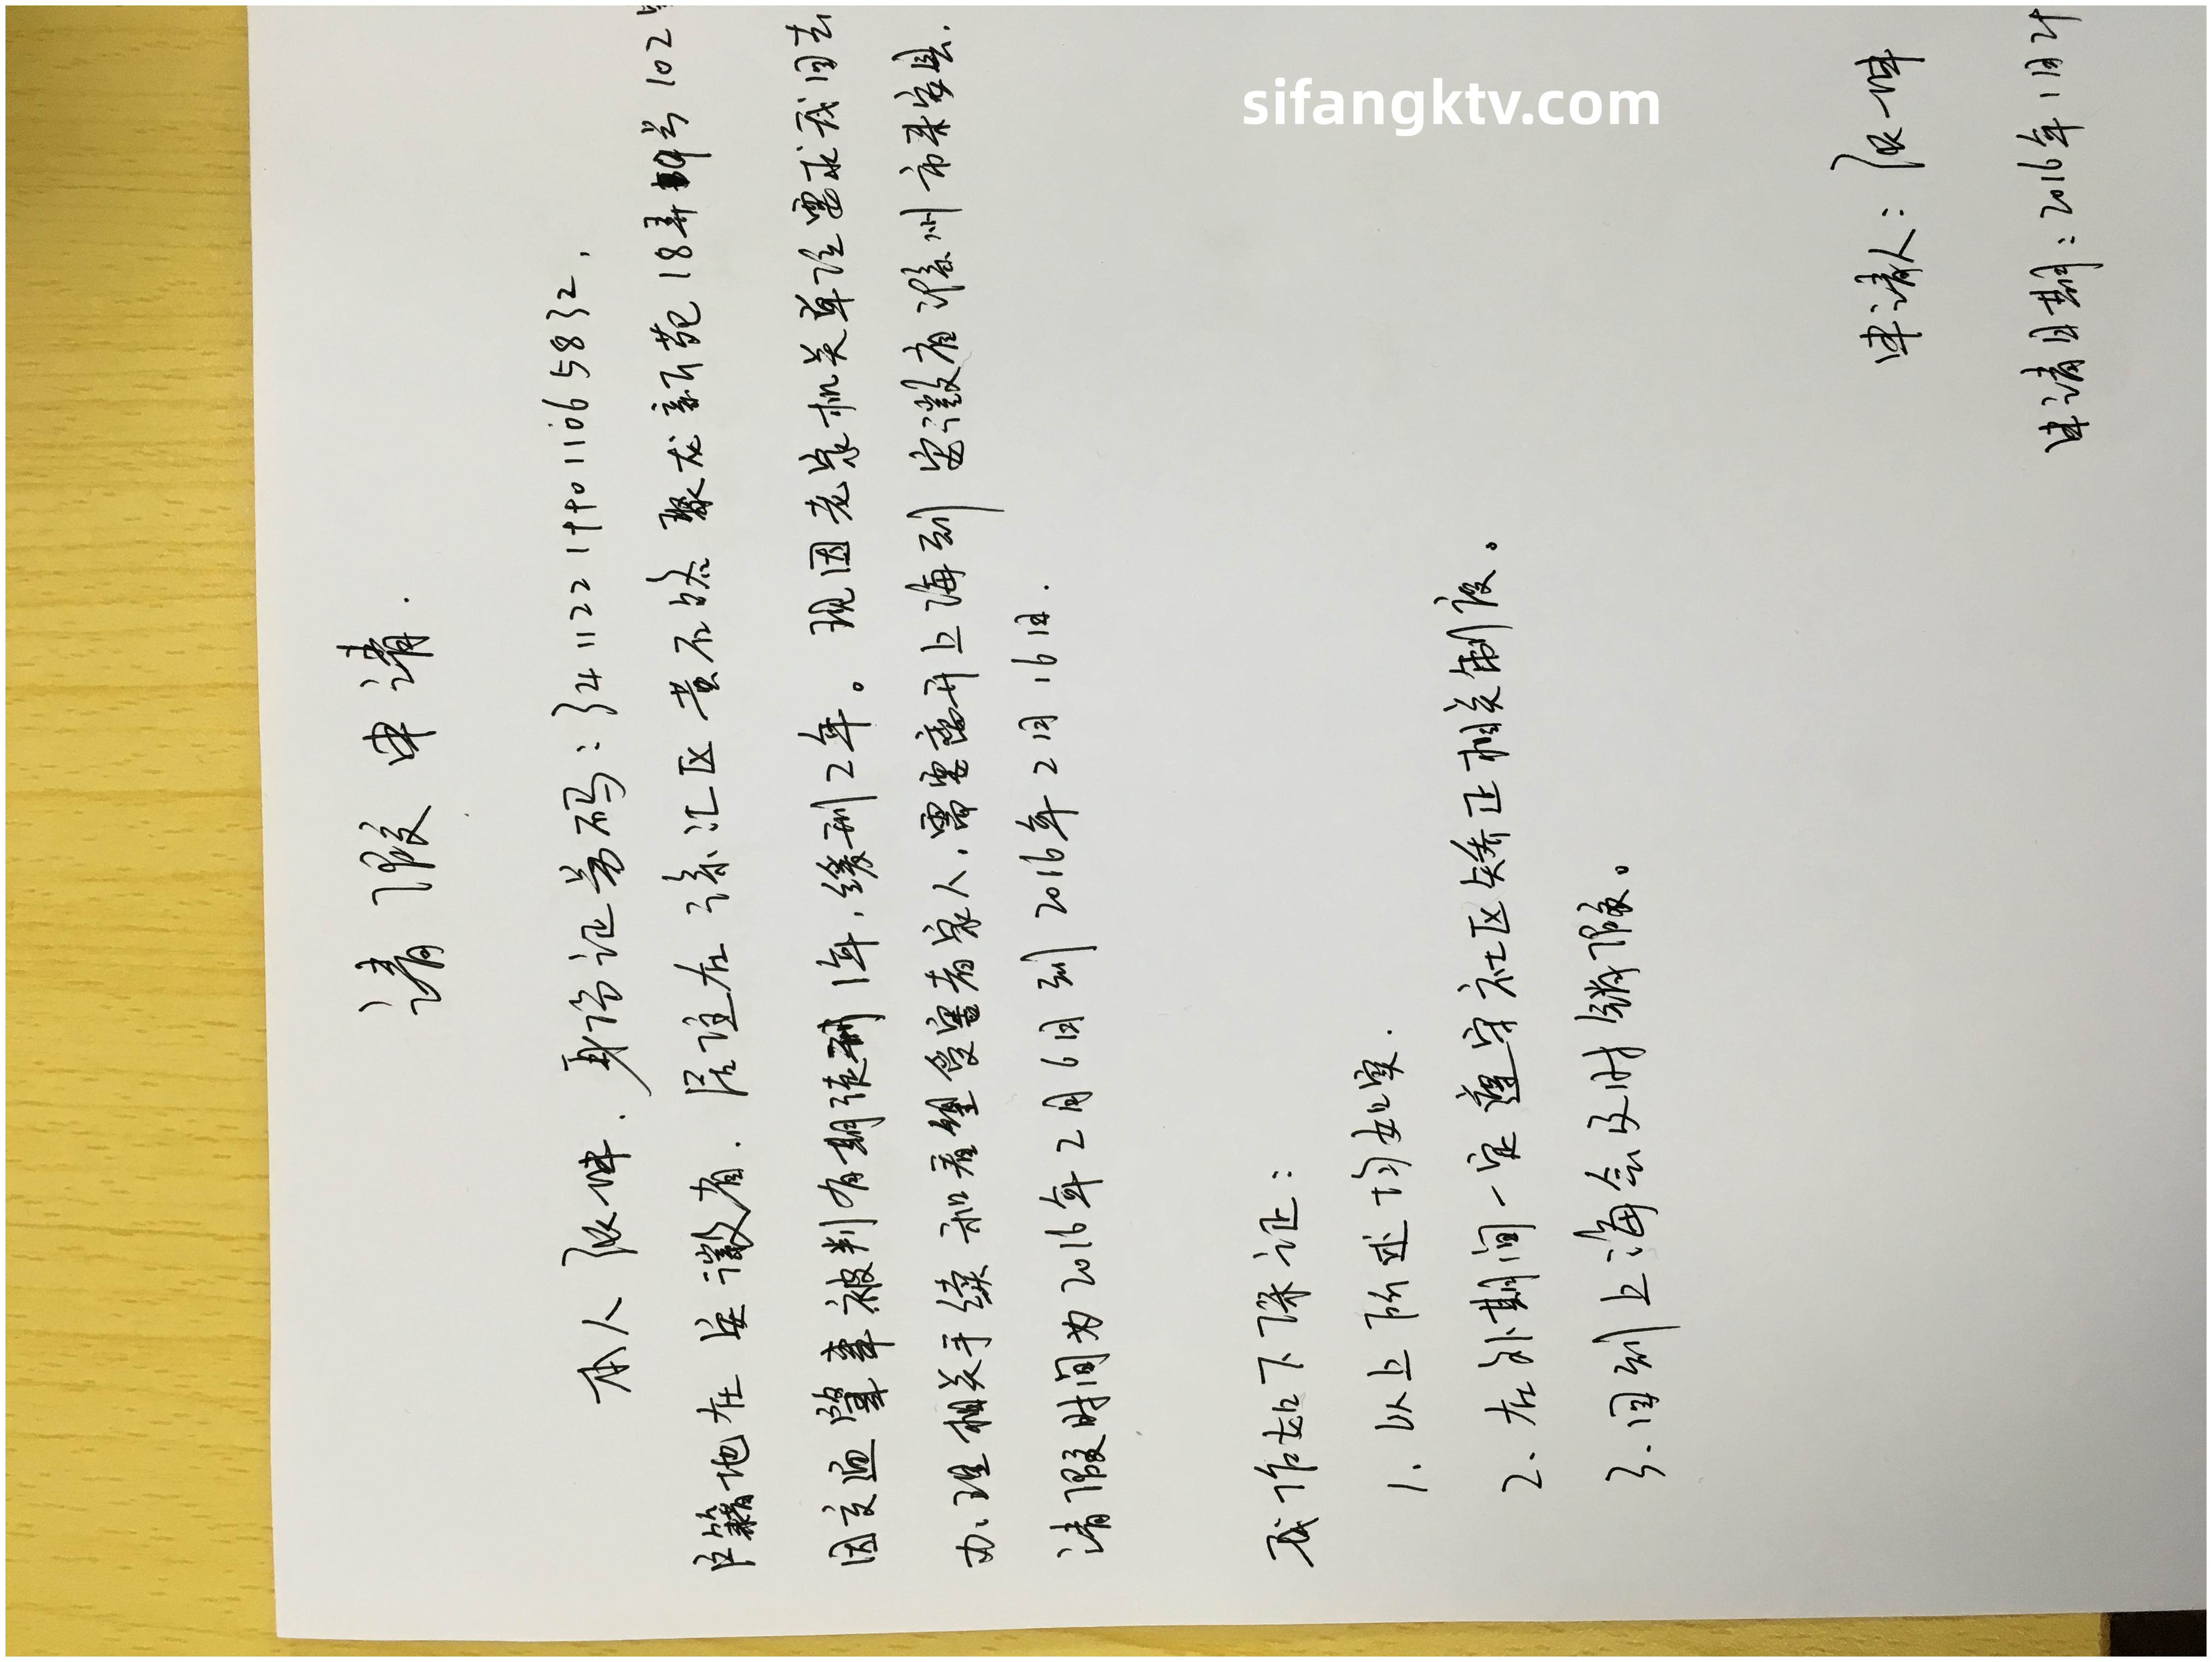 请假申请.
本人张坤.身份证号码:341122199011065832,
户籍地在安徽省.居住在徐汇区黄石路聚龙新苑18弄49号102
因交通肇事被判有期徒刑1年,缓刑2年。现因老家机关单位要求我回去
办理相关手续和看望受害者家人,需要离开上海到安徽省滁州市来安县.
请假时间为2016年2月6日到2016年2月16日.
我作如下保证:
1. 以上所述均如实.
2. 在外期间一定遵守社区矫正相关制度。
3. 回到上海会及时销假。
申请人:张坤
申请日期:2016年1月
sifangktv.com